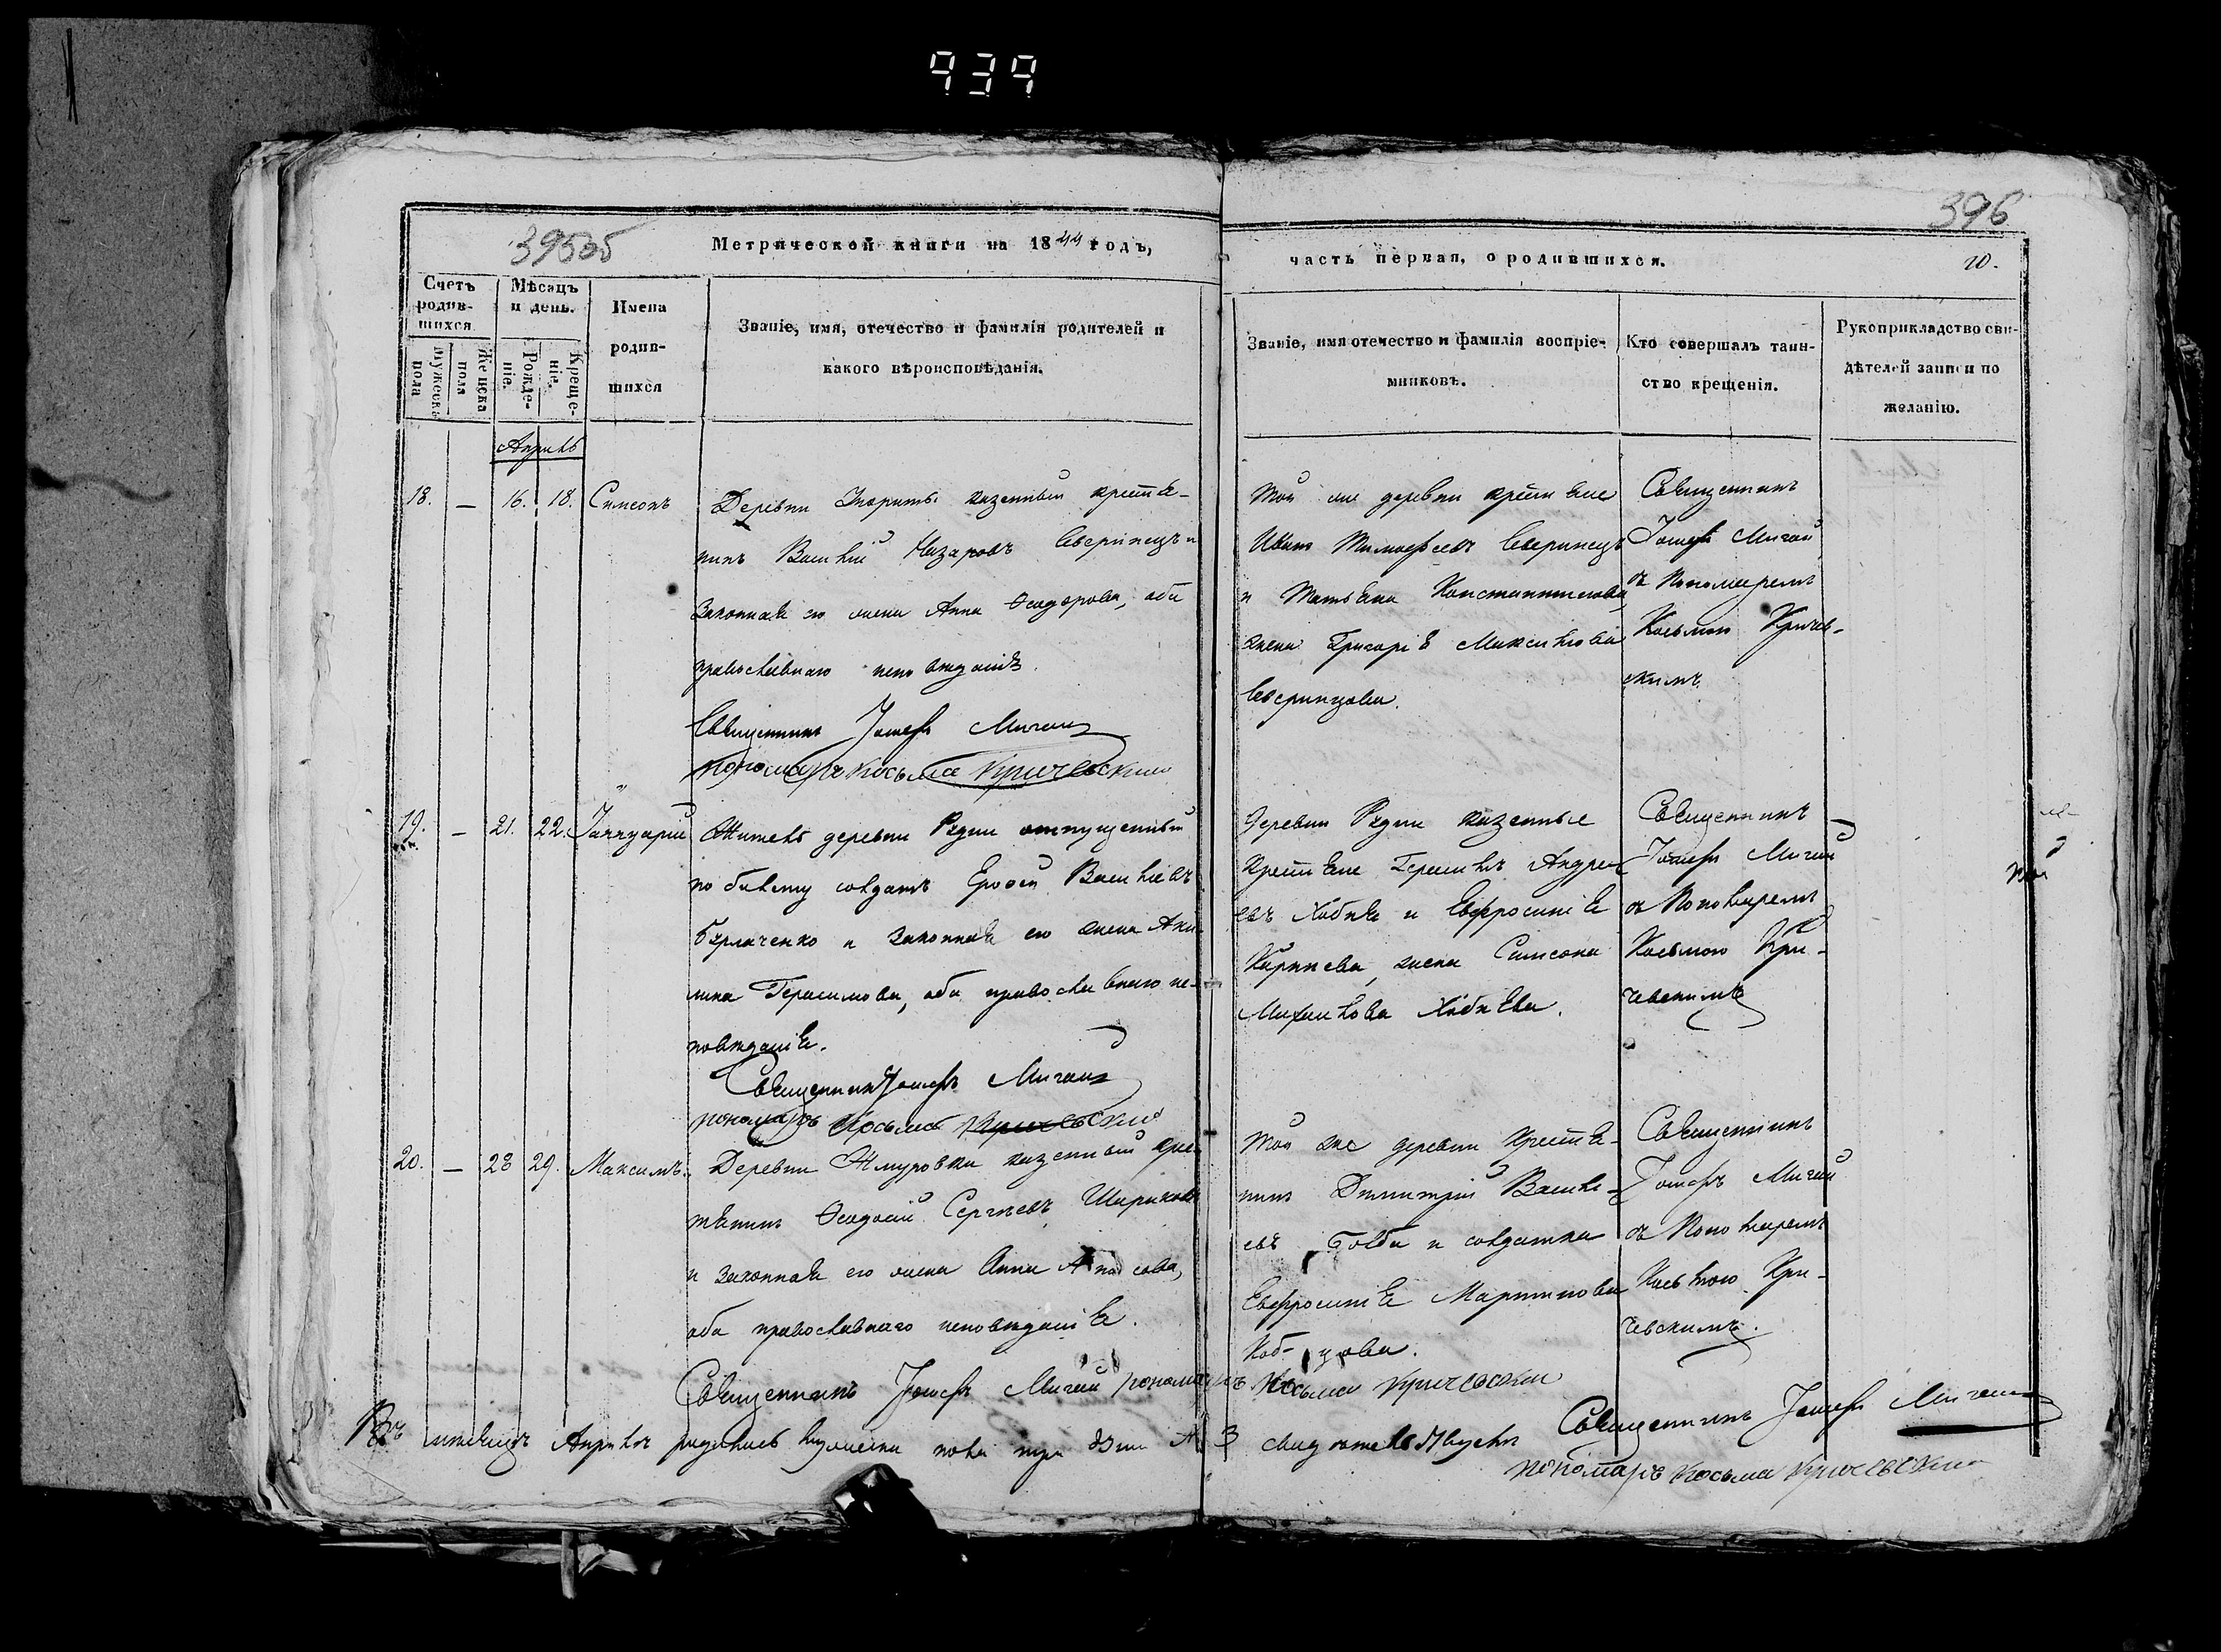 939
395об
396
Метрической книги на 1844 годъ,
часть первая, о родившихся.
Счетъ родив-шихся
Мѣсяцъ и день.
Имена родив-шихся
Званіе, имя, отечество и фамилія родителей и какого вѣроисповѣданія.
Званіе, имя отечество и фамилія воспріе-мниковъ.
Кто совершалъ таин-ство крещенія.
Рукоприкладство сви-дѣтелей записи по желанію.
Мужеска пола
Женска пола
Рожде-ніе.
Креще-ніе.
Апрѣль
18. — 16. 18. Симеонъ
Деревни казенный крестья-
нинъ Василій Назаровъ Северинецъ и
законная его жена Анна Ѳеодорова, оба
православнаго исповѣданія.
Священникъ Іосифъ Мигай
пономарь Косьма Кричевскій
Той же деревни крестьяне
Иванъ Тимофеевъ Северинецъ
и Татьяна Константинова,
жена Григорія Максимова
Северинцова.
Священникъ
Іосифъ Мигай
съ Пономаремъ
Косьмою Кричев-
скимъ
19. — 21. 22. Іаннуарій
Житель деревни отпущенный
по билету солдатъ Ерофей Васильевъ
Бурлаченко и законная его жена Аки-
лина Герасимова, оба православнаго ис-
повѣданія.
Священникъ Іосифъ Мигай
пономарь Косьма Кричевскій
Деревни казенные
крестьяне Герасимъ Андре-
евъ и Евфросинія
жена Симеона
Михайлова
Священникъ
Іосифъ Мигай
съ Пономаремъ
Косьмою Кри-
чевскимъ
20. — 28 29. Максимъ.
Деревни Жмуровки казенный крес-
тьянинъ Ѳеодосій Сергѣевъ
и законная его жена Анна
оба православнаго исповѣданія.
Священникъ Іосифъ Мигай пономарь Косьма Кричевскій
Той же деревни крестья-
нинъ Дмитрій Василь-
евъ и солдатка
Евфросинія Мартинова
Священникъ
Іосифъ Мигай
съ Пономаремъ
Косьмою Кри-
чевскимъ.
Въ мѣсяцѣ Апрѣлѣ родилось мужеска пола три души
Священникъ Іосифъ Мигай
пономарь Косьма Кричевскій